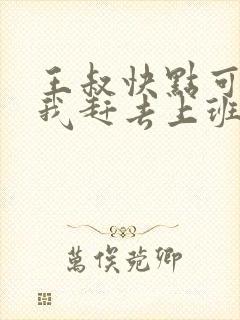 王叔快點可
我赶去上班
萬俟菀卿